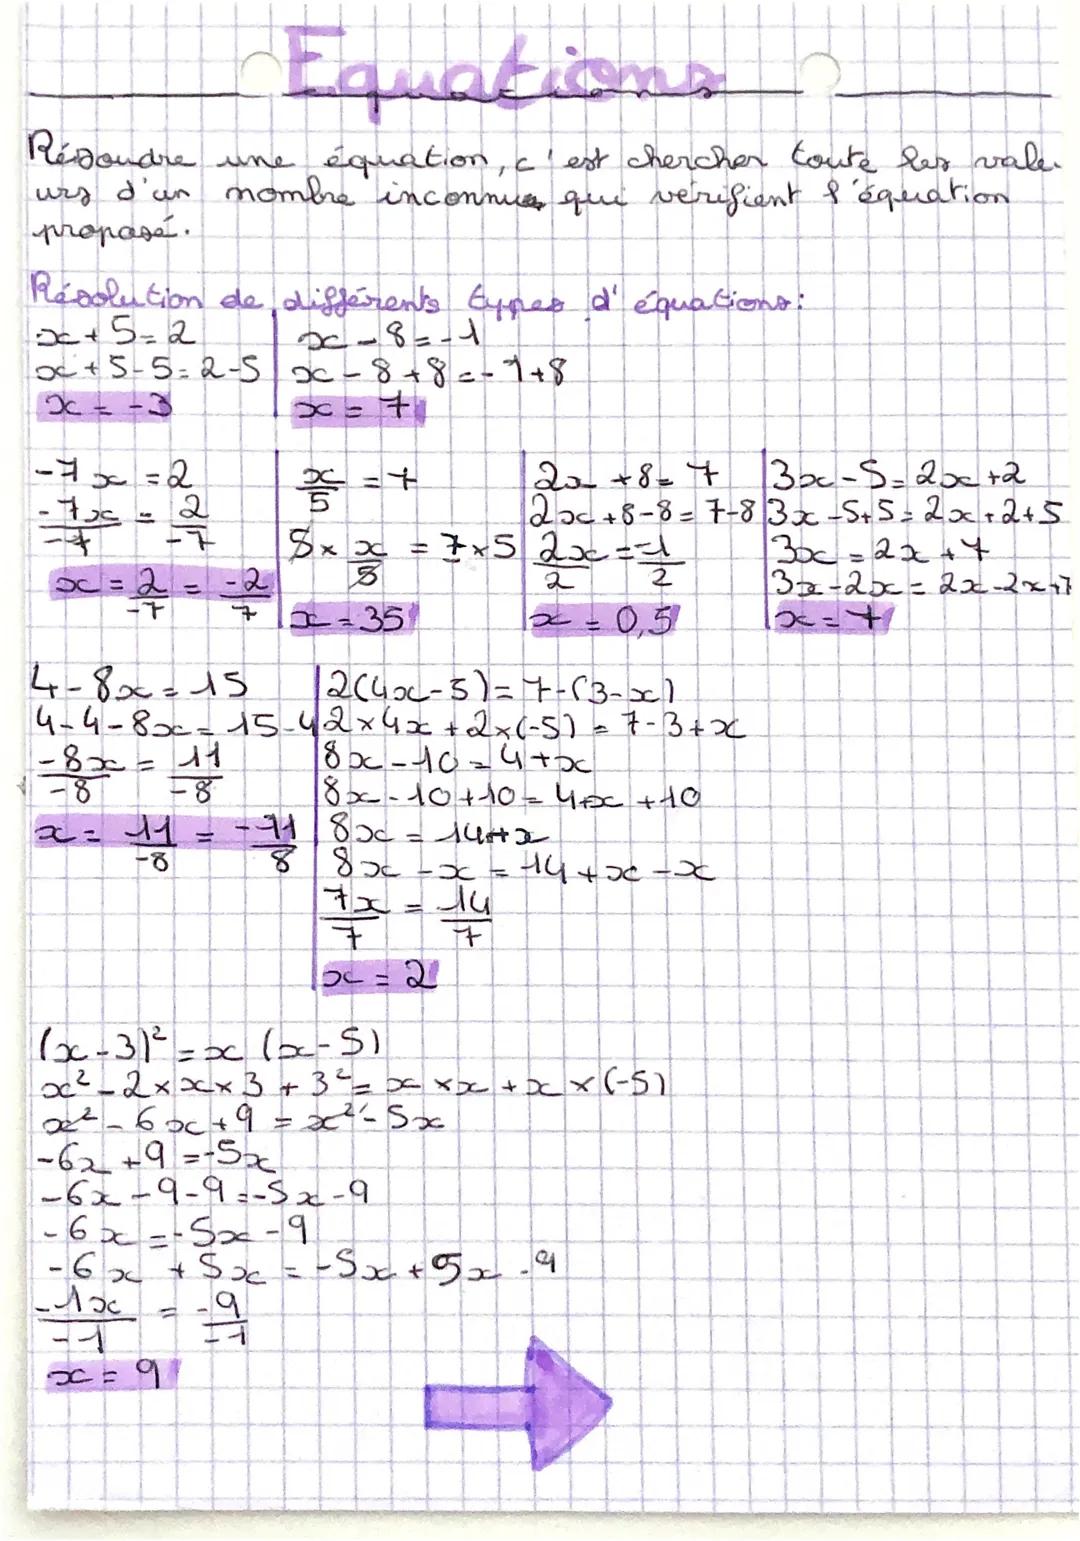 Equations
Résoudre une équation, c'est chercher toute les vale-
urs d'un nombre inconnue qui vérifient l'équation
proposé.
Résolution de différents types d'équations:
x + 5 = 2
x + 5 - 5 = 2 - 5
x = -3
x - 8 = -1
x - 8 + 8 = -1 + 8
x = 7
-7x = 2
-7x/-7 = 2/-7
x = 2/-7 = -2/7
x/5 = 7
5 × x/5 = 7 × 5
x = 35
2x + 8 = 7
2x + 8 - 8 = 7 - 8
2x/2 = -1/2
x = 0,5
3x - 5 = 2x + 2
3x - 5 + 5 = 2x + 2 + 5
3x = 2x + 7
3x - 2x = 2x - 2x + 7
x = 7
4 - 8x = 15
4 - 4 - 8x = 15 - 4
-8x/-8 = 11/-8
x = 11/-8 = -11/8
2(4x - 5) = 7 - (3 - x)
2 × 4x + 2 × (-5) = 7 - 3 + x
8x - 10 = 4 + x
8x - 10 + 10 = 4 + x + 10
8x = 14 + x
8x - x = 14 + x - x
7x/7 = 14/7
x = 2
(x - 3)² = x (x - 5)
x² - 2 × x × 3 + 3² = x × x + x × (-5)
x² - 6x + 9 = x² - 5x
-6x + 9 = -5x
-6x - 9 - 9 = -5x - 9
-6x = -5x - 9
-6x + 5x = -5x + 5x - 9
-1x/-1 = -9/-1
x = 9